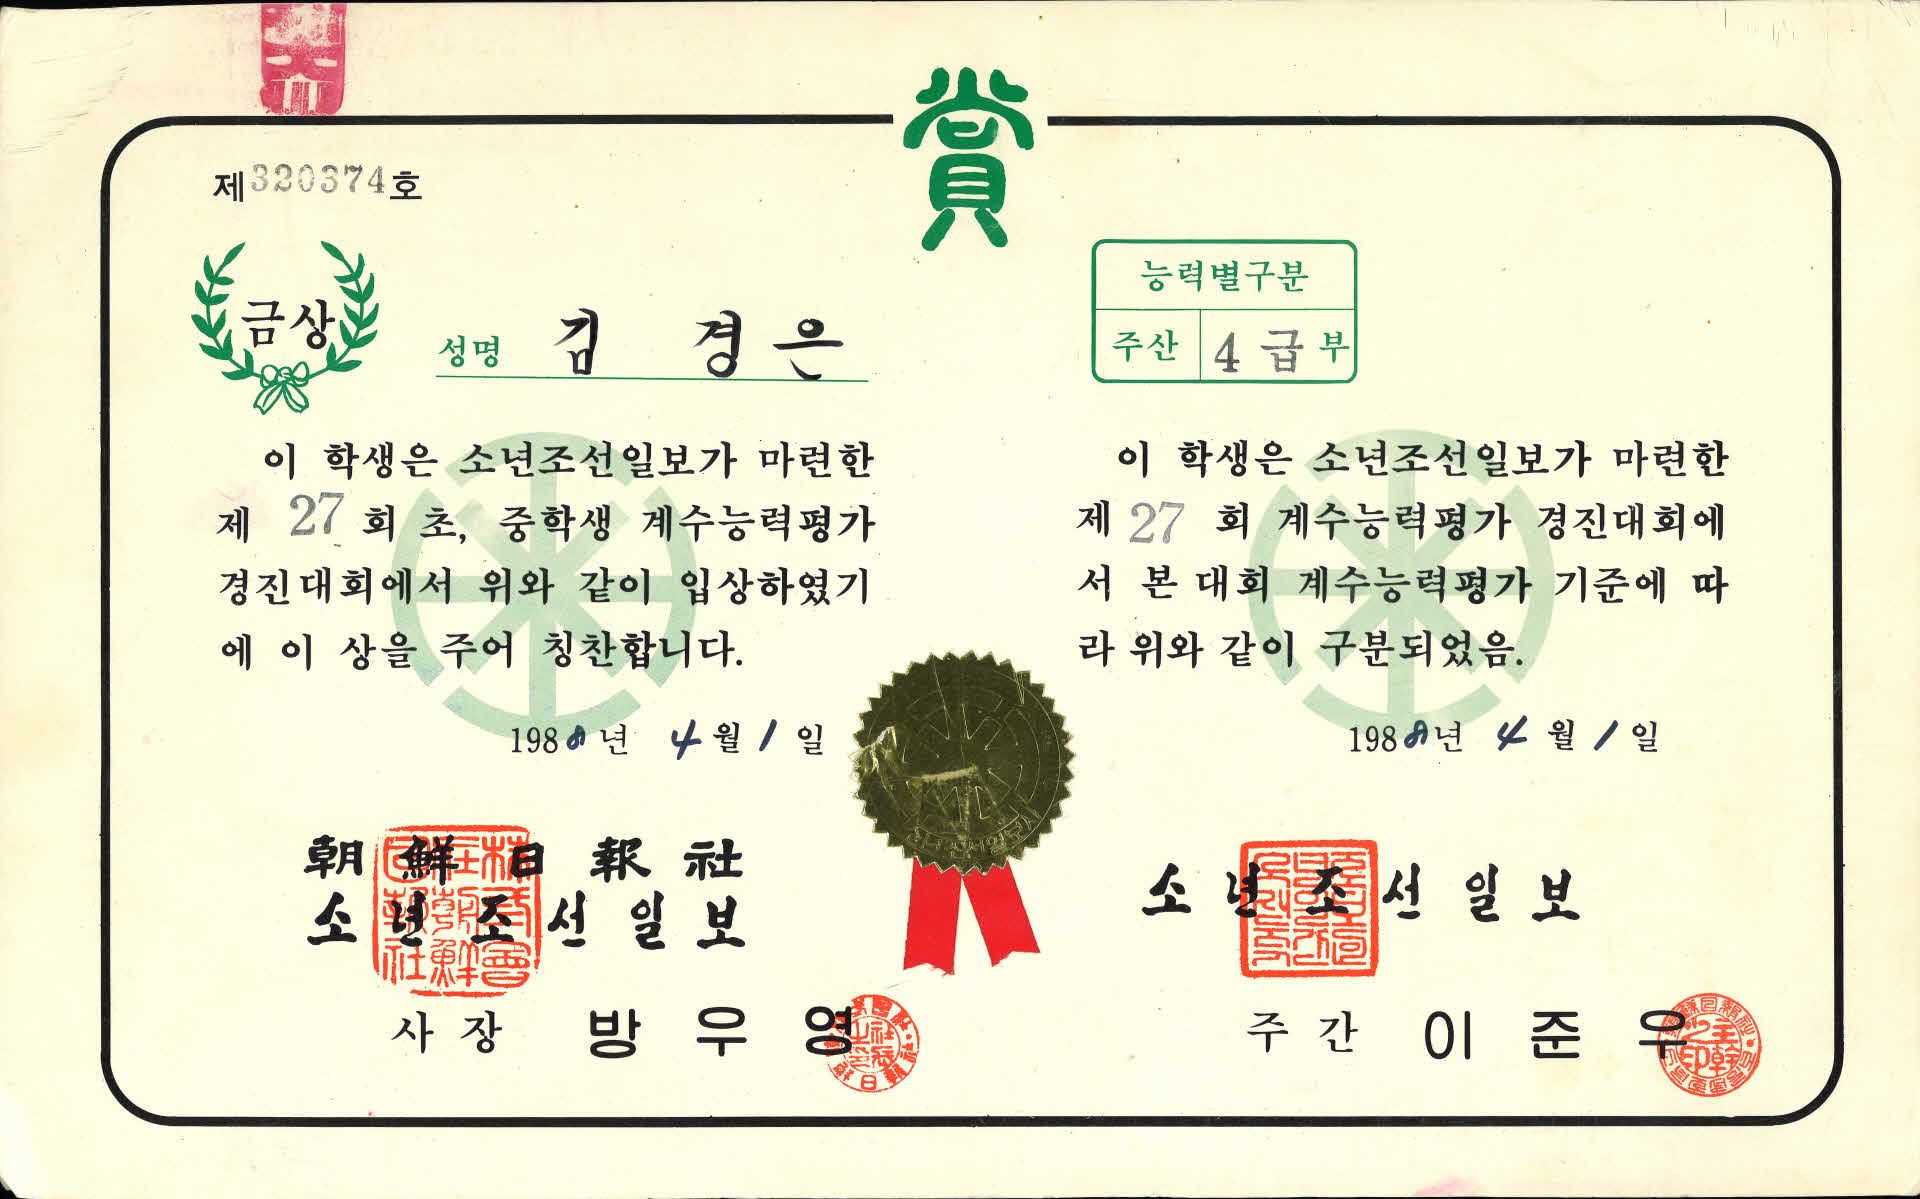 賞
제320374호
금상
성명 김 경은
이 학생은 소년조선일보가 마련한
제 27 회 초, 중학생 계수능력평가
경진대회에서 위와 같이 입상하였기
에 이 상을 주어 칭찬합니다.
1988년 4월 1일
朝鮮日報社
소년조선일보
사장 방우영
능력별구분
주산 4급부
이 학생은 소년조선일보가 마련한
제 27 회 계수능력평가 경진대회에
서 본 대회 계수능력평가 기준에 따
라 위와 같이 구분되었음.
1988년 4월 1일
소년조선일보
주간 이준우